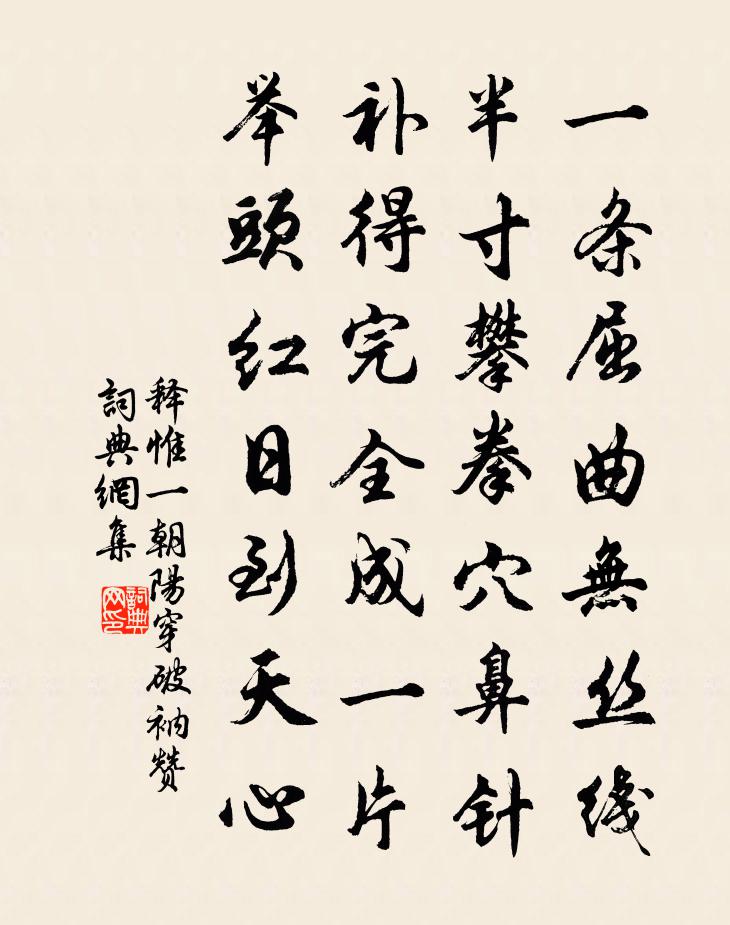 一条屈曲無丝线
半寸攀拳穴鼻针
补得完全成一片
举頭红日到天心
释惟一朝陽穿破衲赞
詞典網集
詞典网印